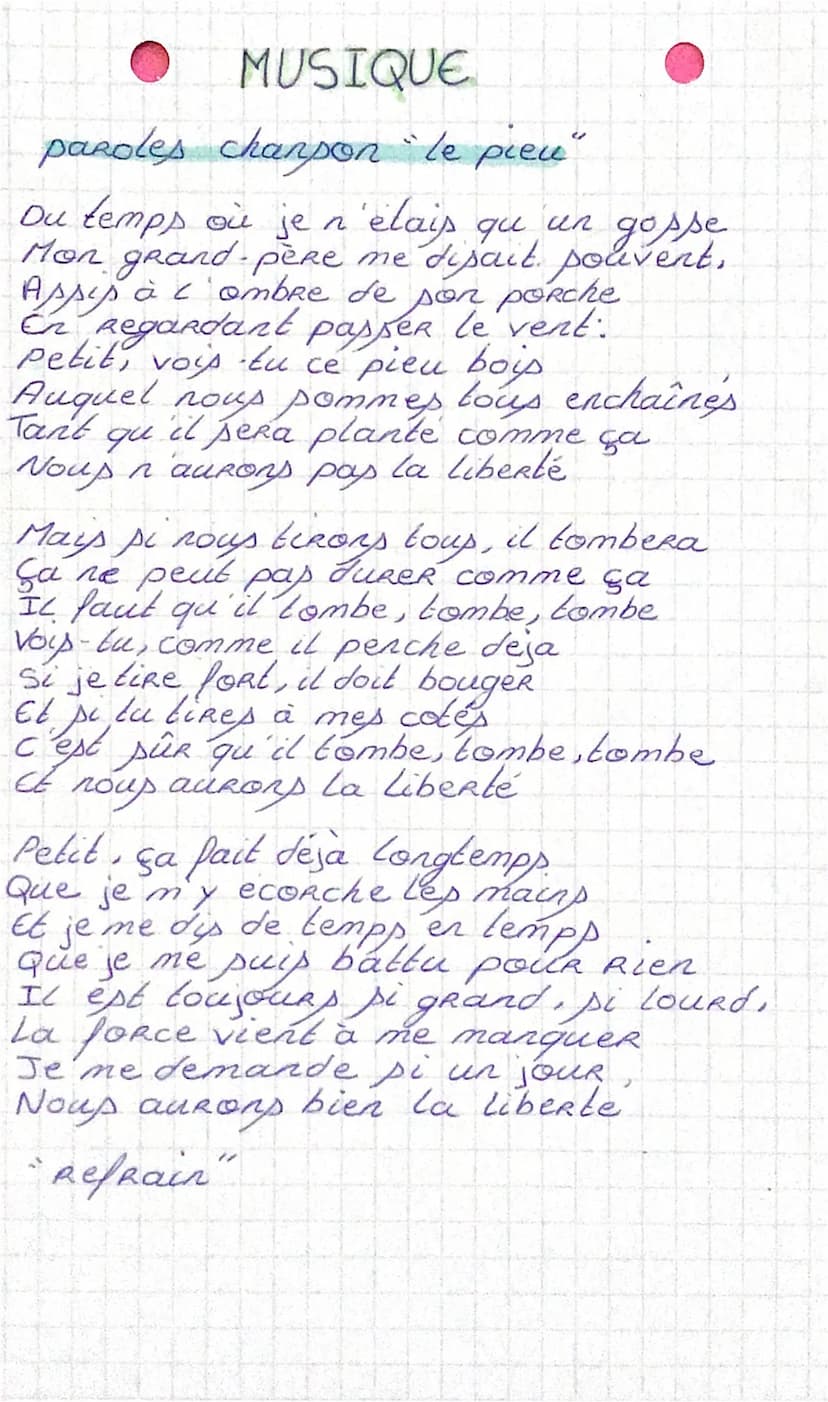 MUSIQUE
paroles chanson "le pieu"
Du temps où je n'étais qu'un gosse
Mon grand-père me disait souvent,
Assis à l'ombre de son porche
En regardant passer le vent :
Petit, vois-tu ce pieu bois
Auquel nous sommes tous enchaînés
Tant qu'il sera planté comme ça
Nous n'aurons pas la liberté
Mais si nous tirons tous, il tombera
Ça ne peut pas durer comme ça
Il faut qu'il tombe, tombe, tombe
Vois-tu, comme il penche déja
Si je tire fort, il doit bouger
Et si tu tires à mes cotés
C'est sûr qu'il tombe, tombe, tombe
Et nous aurons la liberté
Petit, ça fait déjà longtemps
Que je m'y ecorche les mains
Et je me dis de temps en temps
Que je me suis battu pour rien
Il est toujours si grand, si lourd,
La force vient à me manquer
Je me demande si un jour
Nous aurons bien la liberté
"Refrain"